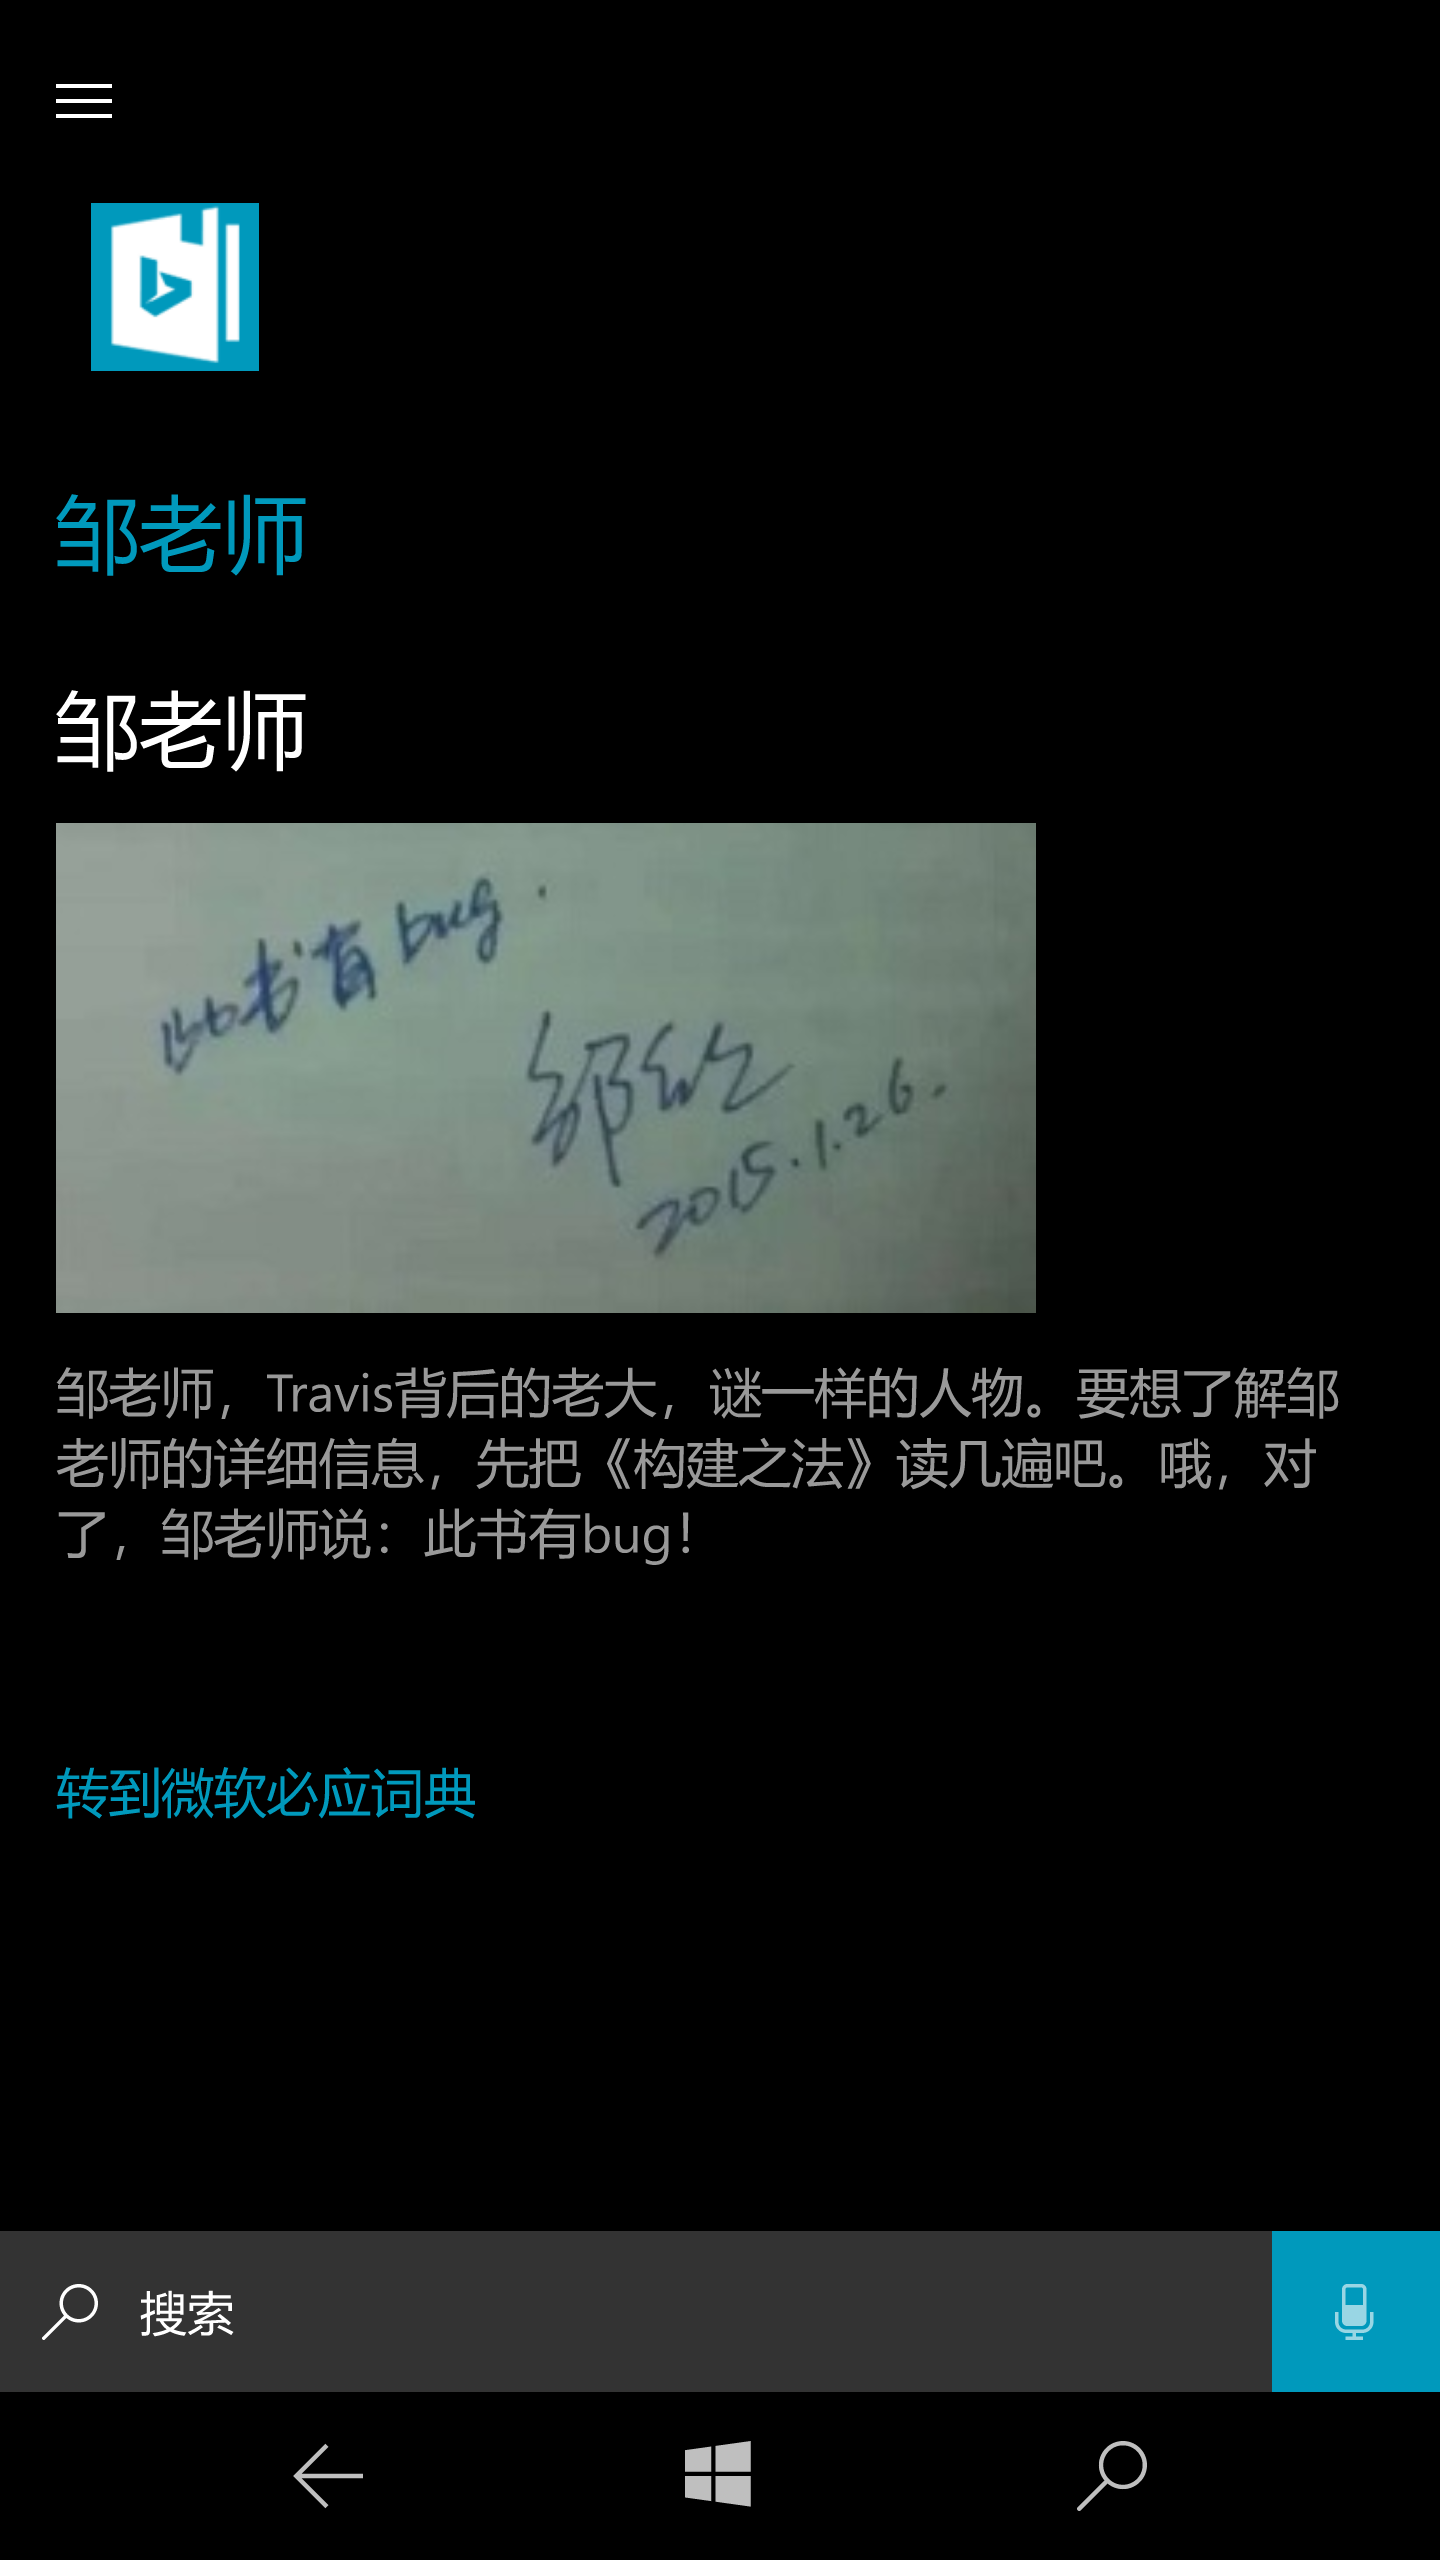 邹老师
邹老师
此书有bug.
邹欣
2015.1.26.
邹老师，Travis背后的老大，谜一样的人物。要想了解邹
老师的详细信息，先把《构建之法》读几遍吧。哦，对
了，邹老师说：此书有bug！
转到微软必应词典
搜索